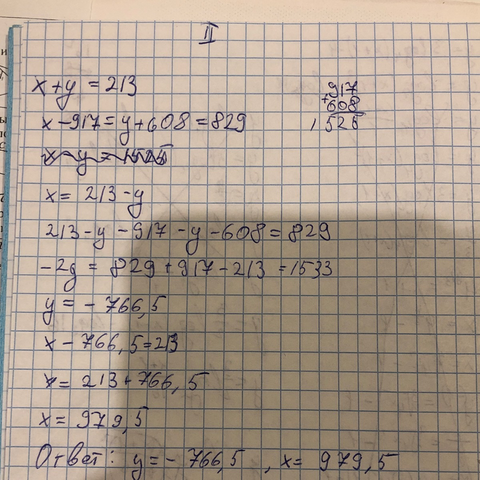 II
x+y=213
x-917=y+608=829
917
+608
1525
x=213-y
213-y-917-y-608=829
-2y=829+917-213=1533
y=-766,5
x-766,5=213
x=213+766,5
x=979,5
Ответ: y=-766,5, x=979,5